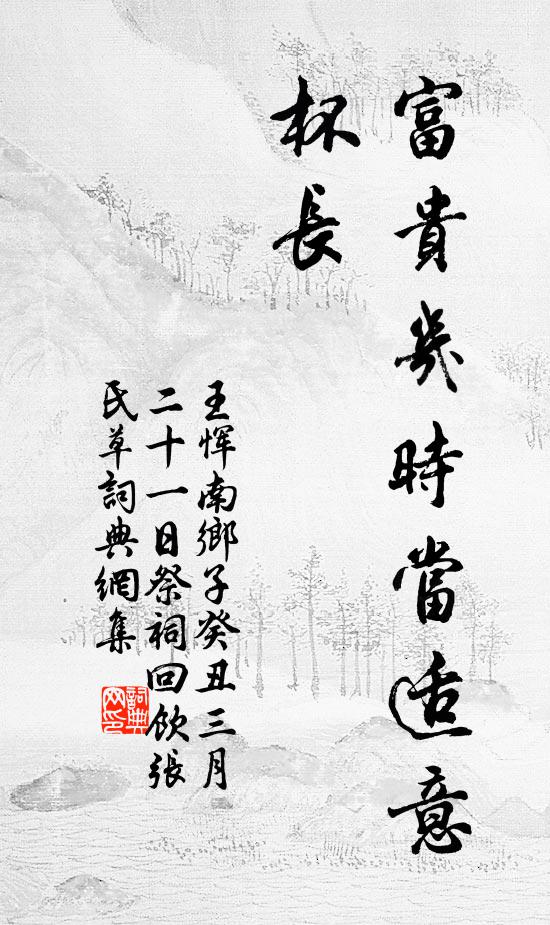 富貴幾時當適意
杯長
王恽南鄉子癸丑三月
二十一日祭祠回飲張
氏草詞典網集
詞典
网印